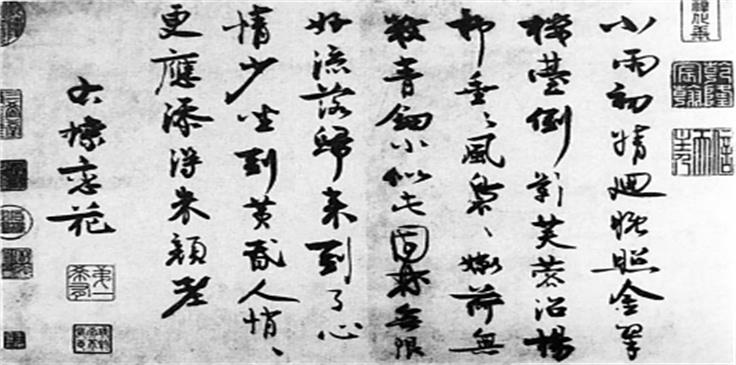 小雨初晴迴晚照金翠
樓臺倒影芙蓉沼楊
柳垂〻風裊〻嫩荷無
數青鈿小似此園林無限
好流落歸来到了心
情少坐到黄昏人悄〻
更應添得朱顏老
右蝶戀花